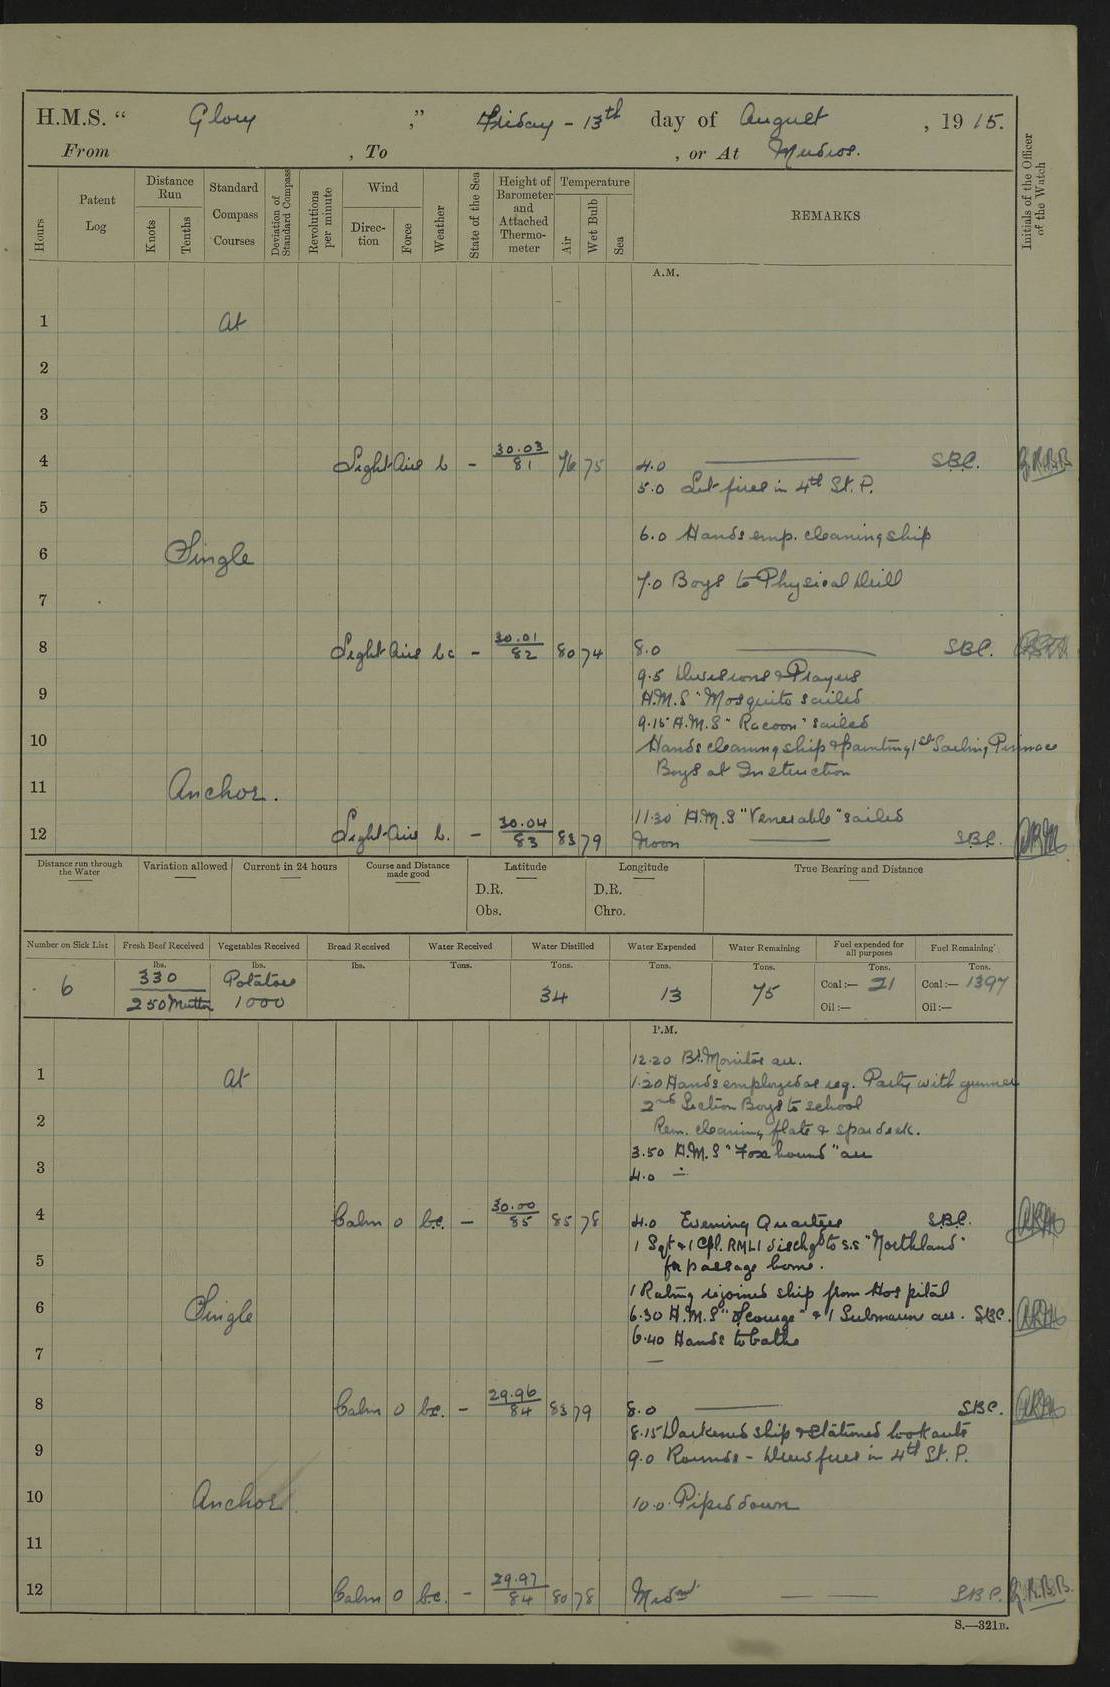 H.M.S. “ Glory ,” Friday - 13th day of August , 1915.
From , To , or At Mudros.
Hours Patent Log Distance Run Knots Tenths Standard Compass Courses Deviation of Standard Compass Revolutions per minute Wind Direction Force Weather State of the Sea Height of Barometer and Attached Thermometer Temperature Air Wet Bulb Sea REMARKS Initials of the Officer of the Watch
A.M.
1 At
2
3
4 Light Airs b - 30.03 81 76 75 4.0 ——— SBC. G.R.B.B.
5.0 Lit fires in 4th St. P.
5
6.0 Hands emp. cleaning ship
6 Single
7.0 Boys to Physical Drill
7
8 Light Airs bc - 30.01 82 80 74 8.0 ——— SBC.
9.5 Divisions & Prayers
9 H.M.S "Mosquito sailed
9.15 H.M.S "Racoon" sailed
10 Hands cleaning ship & painting 1st Sailing Pinnace
Boys at Instruction
11 Anchor.
11.30 H.M.S "Venerable" sailed
12 Light Airs b. - 30.04 83 83 79 Noon ——— SBC.
Distance run through the Water Variation allowed Current in 24 hours Course and Distance made good Latitude Longitude True Bearing and Distance
D.R. D.R.
Obs. Chro.
Number on Sick List Fresh Beef Received Vegetables Received Bread Received Water Received Water Distilled Water Expended Water Remaining Fuel expended for all purposes Fuel Remaining
lbs. lbs. lbs. Tons. Tons. Tons. Tons. Tons. Tons.
6 330 Potatoes 34 13 75 Coal:— 21 Coal:— 1397
250 Mutton 1000 Oil:— Oil:—
P.M.
12.20 Br. Monitor arr.
1 At 1.20 Hands employed as req. Party with gunner
2nd Section Boys to school
2 Rem. cleaning flats & spar deck.
3.50 H.M.S "Foxhound" arr
3 4.0 —
4 Calm 0 bc. - 30.00 85 85 78 4.0 Evening Quarters SBC.
1 Sgt & 1 Cpl. RMLI dischgd to S.S "Northland"
5 for passage home.
1 Rating rejoined ship from Hospital
6 Single 6.30 H.M.S "Scourge" & 1 Submarine arr. SBC.
6.40 Hands to bathe
7 —
8 Calm 0 bc. - 29.96 84 83 79 8.0 ——— SBC.
8.15 Darkened ship & stationed lookouts
9 9.0 Rounds - Drew fires in 4th St. P.
10 Anchor 10.0. Piped down
11
12 Calm 0 bc. - 29.97 84 80 78 Midnt ——— SBC. G.R.B.B.
S.—321B.